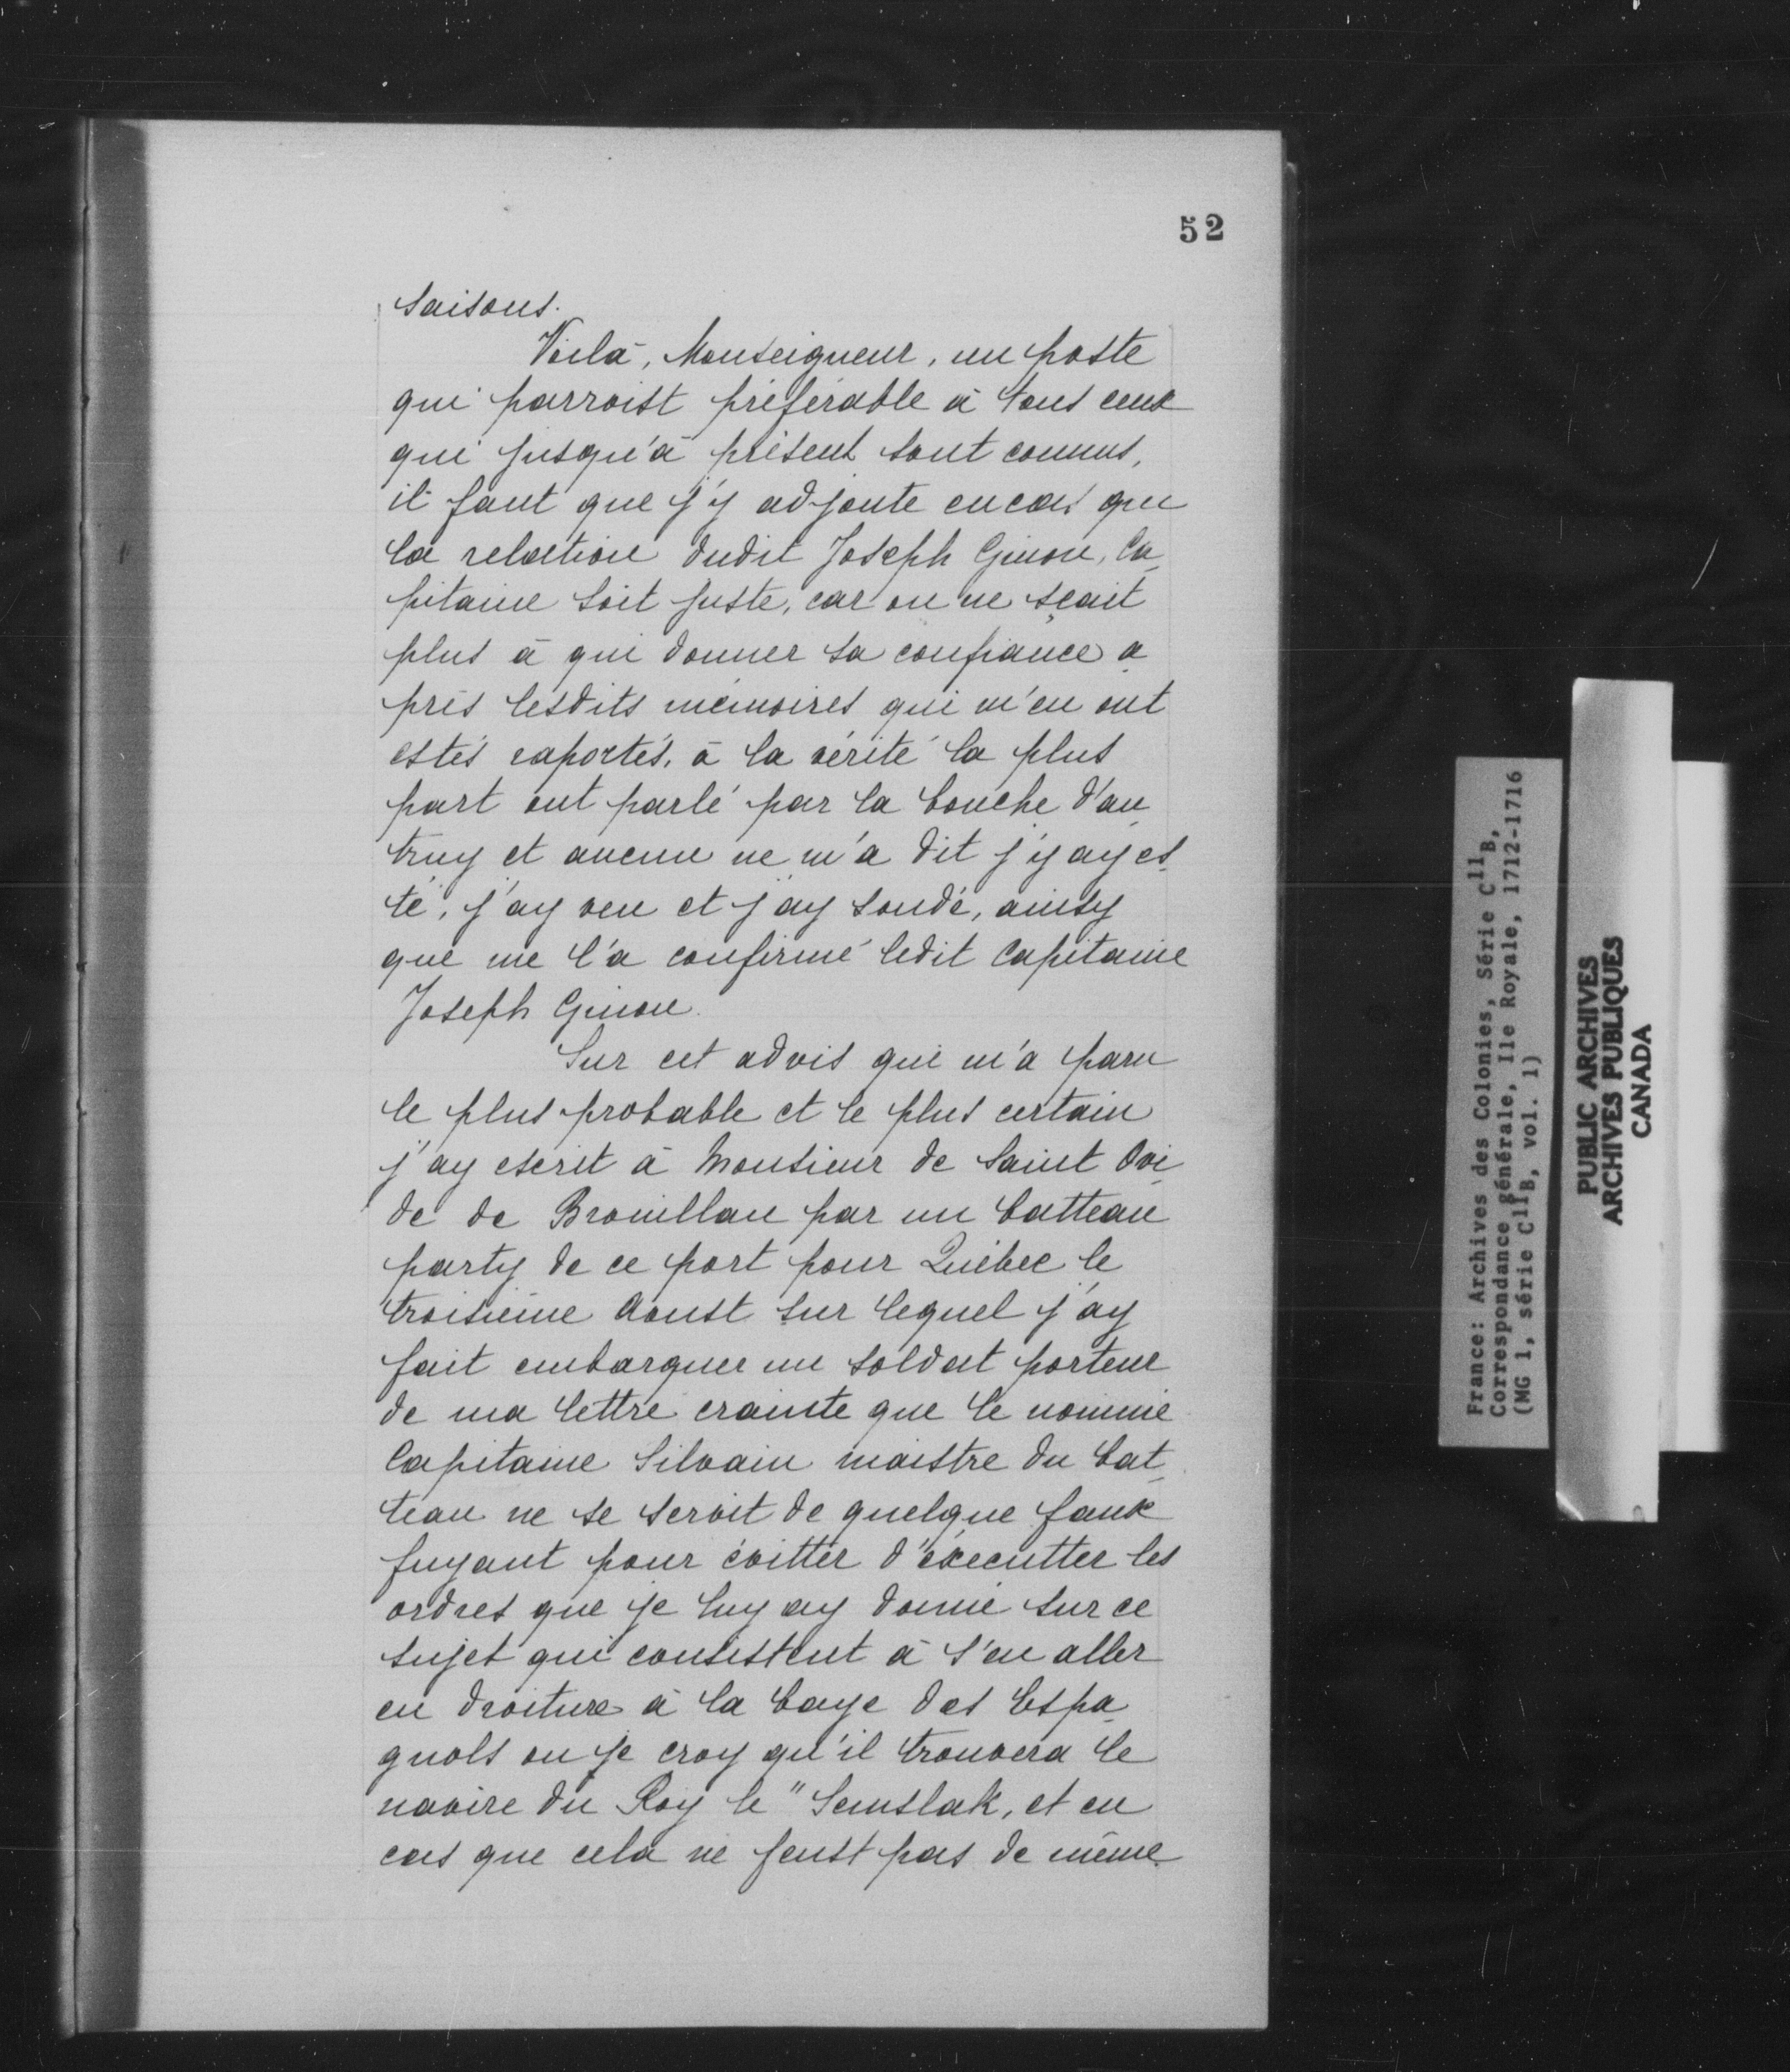 52
saisons.
Voilà, Monseigneur, un poste
qui parroist préférable à tous ceux
qui jusqu'à présent sont connus,
il faut que j'y adjoute en cas que
la relation dudit Joseph Guion, Ca-
pitaine soit juste, car on ne sçait
plus à qui donner sa confiance a-
près lesdits mémoires qui m'en ont
estés raportés, à la vérité la plus
part ont parlé par la bouche d'au-
truy et aucun ne m'a dit j'y ay es-
té, j'ay veu et j'ay sondé, ainsy
que me l'a confirmé ledit Capitaine
Joseph Guion.
Sur cet advis qui m'a paru
le plus probable et le plus certain
j'ay escrit à Monsieur de Saint Ovi-
de de Brouillan par un batteau
party de ce port pour Québec le
troisième Aoust sur lequel j'ay
fait embarquer un soldat porteur
de ma lettre crainte que le nommé
Capitaine Silvain maistre du bat-
teau ne se servit de quelque faux
fuyant pour évitter d'éxecutter les
ordres que je luy ay donné sur ce
sujet qui consistent à s'en aller
en droiture à la baye des Espa-
gnols ou je croy qu'il trouvera le
navire du Roy le "Semslak, et en
cas que cela ne feust pas de même
France: Archives des Colonies, Série C11B,
Correspondance générale, Ile Royale, 1712-1716
(MG 1, série C11B, vol. 1)
PUBLIC ARCHIVES
ARCHIVES PUBLIQUES
CANADA